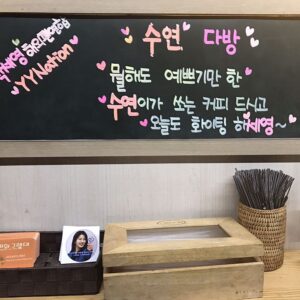 수연 다방
뭘해도 예쁘기만 한
수연이가 쏘는 커피 드시고
오늘도 화이팅 하세영~
YYNation